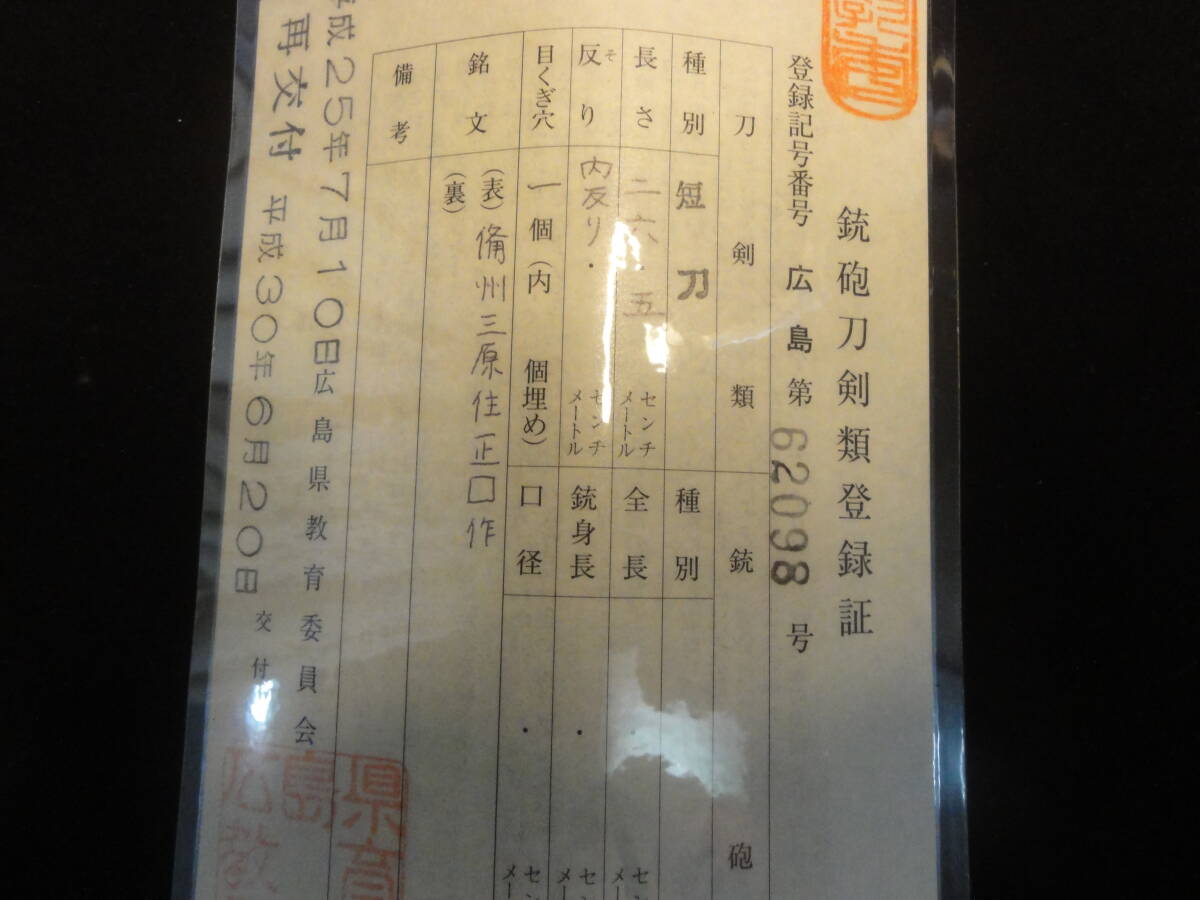 銃砲刀剣類登録証
登録記号番号 広島第 62098 号
刀剣類
種別 短刀
長さ 二六.五 センチメートル
反り そ 内反り . センチメートル
目くぎ穴 一個(内 個埋め)
銘文 (表) 備州三原住正□作
(裏)
備考
銃砲
種別
全長 . センチメートル
銃身長 . センチメートル
口径 . センチメートル
成25年7月10日
広島県教育委員会
再交付 平成30年6月20日 交付
県育
島
広教